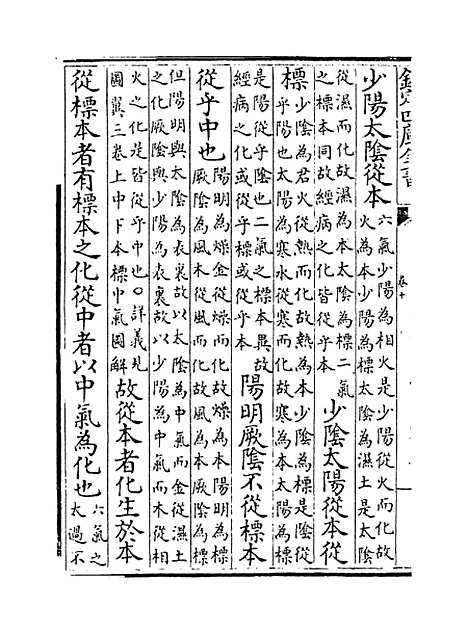 欽定四庫全書
卷十
少陽太陰從本
六氣少陽為相火是少陽從火而化故
火為本少陽為標太陰為濕土是太陰
從濕而化故濕為本太陰為標二氣
之標本同故經病之化皆從乎本
少陰太陽從本從
標
少陰為君火從熱而化故熱為本少陰為標是陰從
乎陽也太陽為寒水從寒而化故寒為本太陽為標
是陽從乎陰也二氣之標本異故
經病之化或從乎標或從乎本
陽明厥陰不從標本
從乎中也
陽明為燥金從燥而化故燥為本陽明為標
厥陰為風木從風而化故風為本厥陰為標
但陽明與太陰為表裏故以太陰為中氣而金從濕土
之化厥陰與少陽為表裏故以少陽為中氣而木從相
火之化是皆從乎中也○詳義見
圖翼三卷上中下本標中氣圖解
故從本者化生於本
從標本者有標本之化從中者以中氣為化也
六氣之
太過不